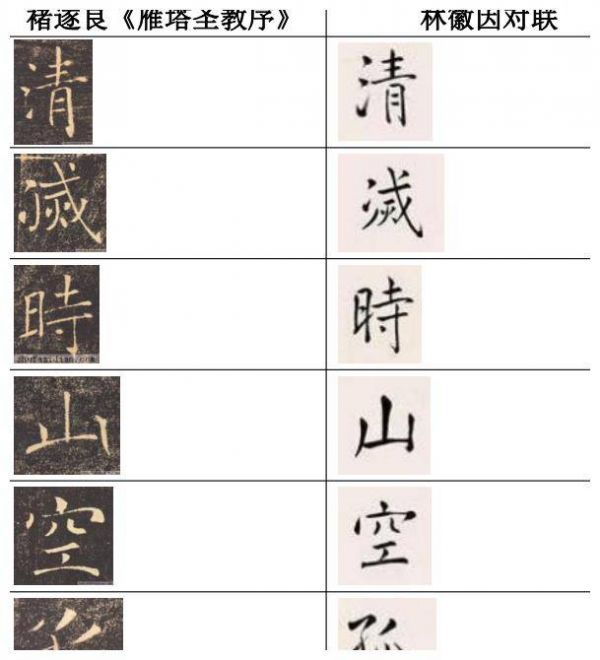 褚遂良《雁塔圣教序》 林徽因对联
清 清
滅 滅
時 時
山 山
空 空